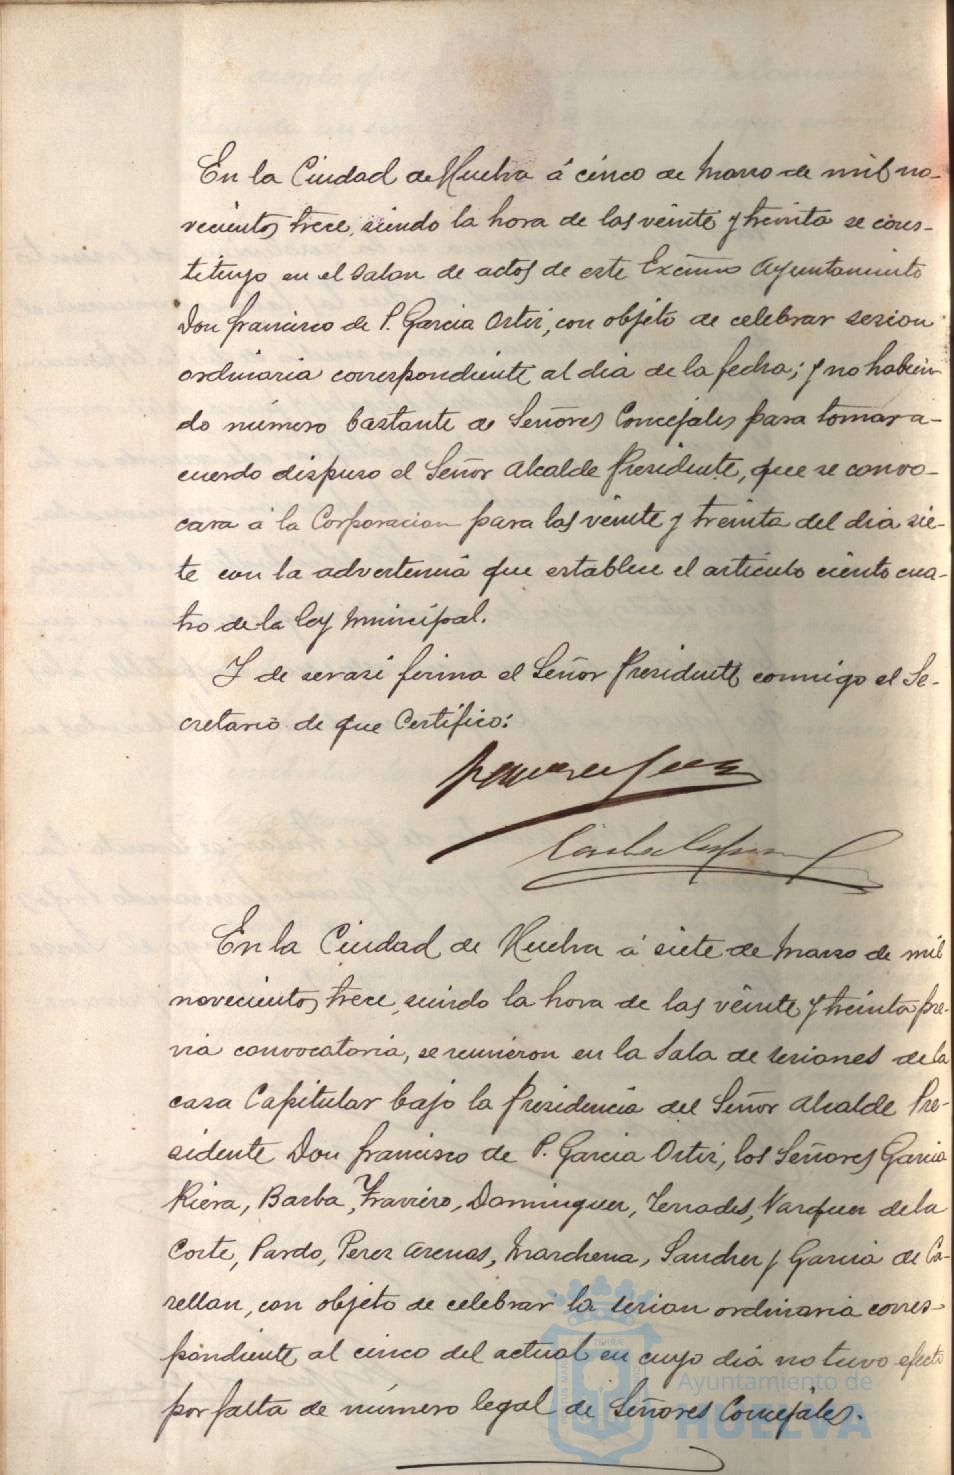 En la Ciudad de Huelva á cinco de Marzo de mil no-
vecientos trece, siendo la hora de las veinte y treinta se cons-
tituyo en el salon de actos de este Excmo Ayuntamiento
Don Francisco de P. Garcia Ortiz, con objeto de celebrar sesion
ordinaria correspondiente al dia de la fecha; y no habien
do número bastante de Señores Concejales para tomar a-
cuerdo dispuso el Señor Alcalde Presidente, que se convo-
cara á la Corporacion para las veinte y treinta del dia sie-
te con la advertencia que establece el articulo ciento cua-
tro de la ley Municipal.
Y de ser asi firma el Señor Presidente conmigo el Se-
cretario de que Certifico:
En la Ciudad de Huelva á siete de Marzo de mil
novecientos trece, siendo la hora de las veinte y treinta pre-
via convocatoria, se reunieron en la Sala de sesiones de la
casa Capitular bajo la Presidencia del Señor Alcalde Pre-
sidente Don Francisco de P. Garcia Ortiz, los Señores Garcia
Riera, Barba, Dominguez, Terrades, Vazquez de la
Corte, Pardo, Perez Arenas, Marchena, Sanchez y Garcia de Ca-
rellan, con objeto de celebrar la sesion ordinaria corres-
pondiente al cinco del actual en cuyo dia no tuvo efecto
por falta de número legal de Señores Concejales.
Ayuntamiento de
HUELVA